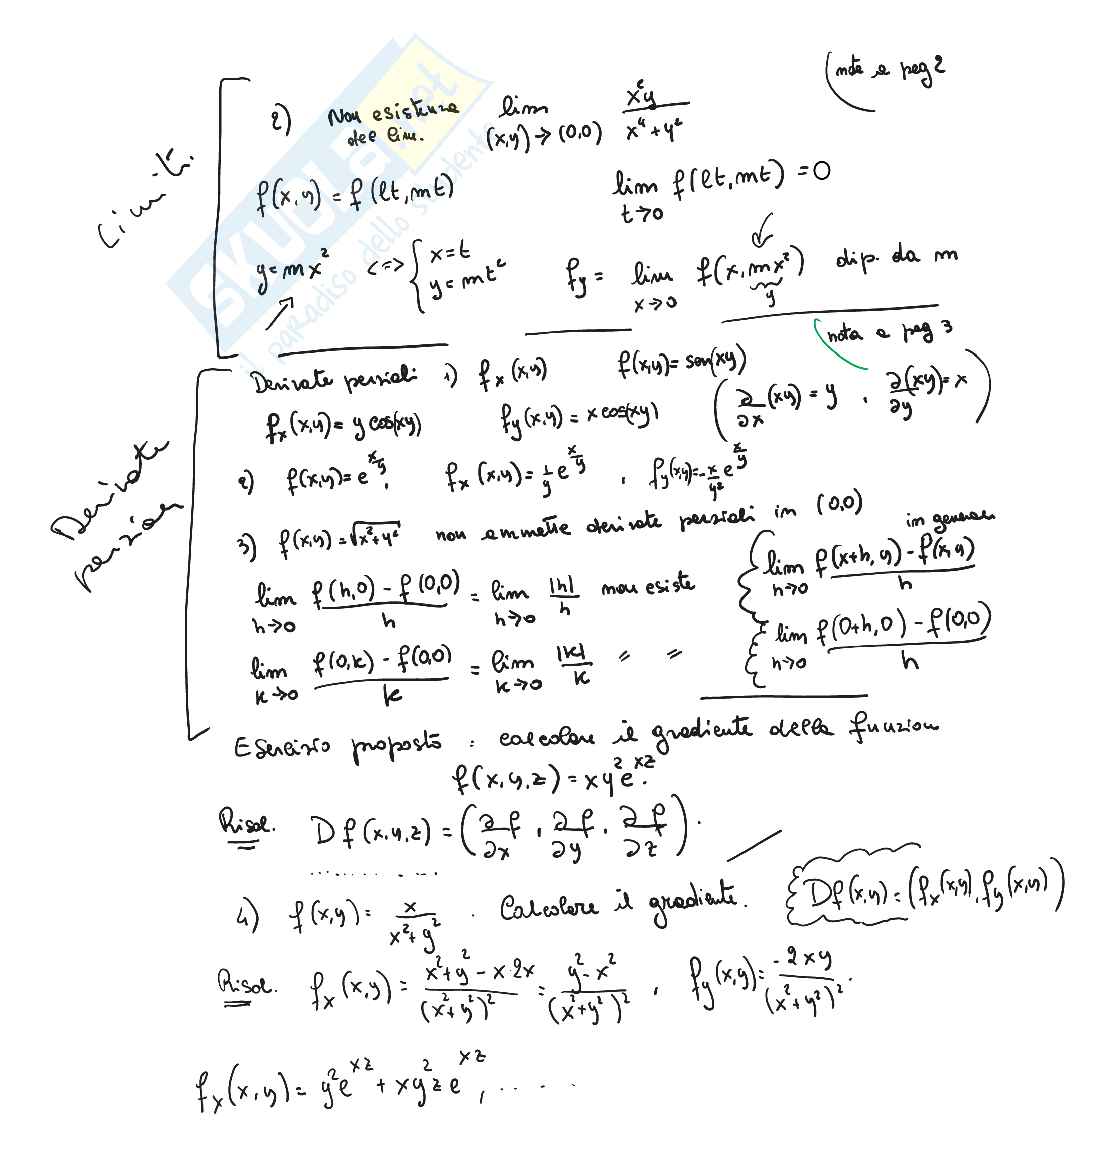 (note a pag 2
Limiti
2) Non esistenza del lim. lim (x,y)→(0,0) x²y / x⁴+y²
f(x,y) = f(lt,mt) lim t→0 f(lt,mt) = 0
y=mx² <=> { x=t y=mt² fy = lim x→0 f(x,mx²) dip. da m
y
nota a pag 3
Derivate parziali
Derivate parziali 1) fx(x,y) f(x,y)=sen(xy)
fx(x,y)= y cos(xy) fy(x,y)= x cos(xy) (∂/∂x (xy)=y , ∂(xy)/∂y=x)
2) f(x,y)=e^(x/y), fx(x,y)= 1/y e^(x/y) , fy(x,y)=-x/y² e^(x/y)
3) f(x,y)=√(x²+y²) non ammette derivate parziali in (0,0)
in general
lim h→0 f(h,0) - f(0,0) / h = lim h→0 |h|/h non esiste { lim h→0 f(x+h,y) - f(x,y) / h
lim k→0 f(0,k) - f(0,0) / k = lim k→0 |k|/k " " { lim h→0 f(0+h,0) - f(0,0) / h
Esercizio proposto : calcolare il gradiente della funzion
f(x,y,z) = xy²e^(xz).
Risol. Df(x,y,z) = (∂f/∂x , ∂f/∂y , ∂f/∂z).
..............
4) f(x,y)= x / x²+y² . Calcolare il gradiente. { Df(x,y)=(fx(x,y), fy(x,y))
Risol. fx(x,y)= x²+y² - x·2x / (x²+y²)² = y²-x² / (x²+y²)² , fy(x,y)= -2xy / (x²+y²)² .
fx(x,y)= y²e^(xz) + xy²ze^(xz), .....
SKUOLA.net
il paradiso dello studente